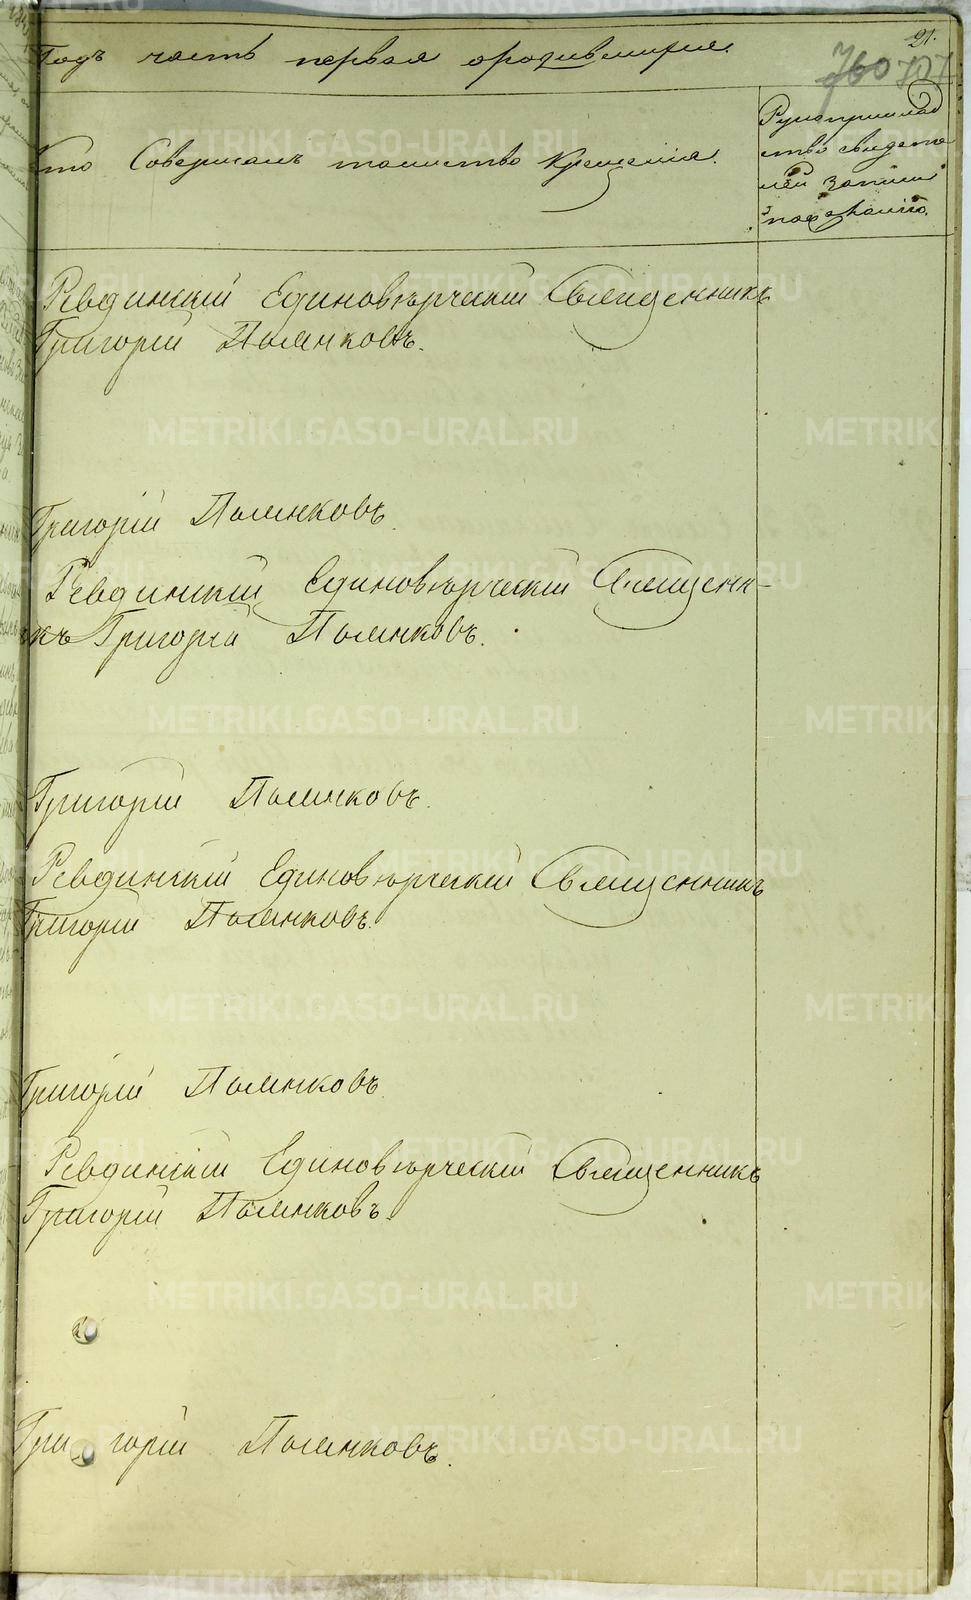 21.
760 707
Годъ часть перваяородившихся.
Кто Совершалъ таинство Крещенія.
Рукоприклад
ство свидете
лей записи
по желанію.
Ревдинскій Единовѣрческій Священникъ
Григорій Паленковъ.
Григорій Паленковъ.
Ревдинскій Единовѣрческій Священи-
къ Григорій Паленковъ.
Григорій Паленковъ.
Ревдинскій Единовѣрческій Священникъ
Григорій Паленковъ.
Григорій Паленковъ.
Ревдинскій Единовѣрческій Священникъ
Григорій Паленковъ.
Григорій Паленковъ.
METRIKI.GASO-URAL.RU